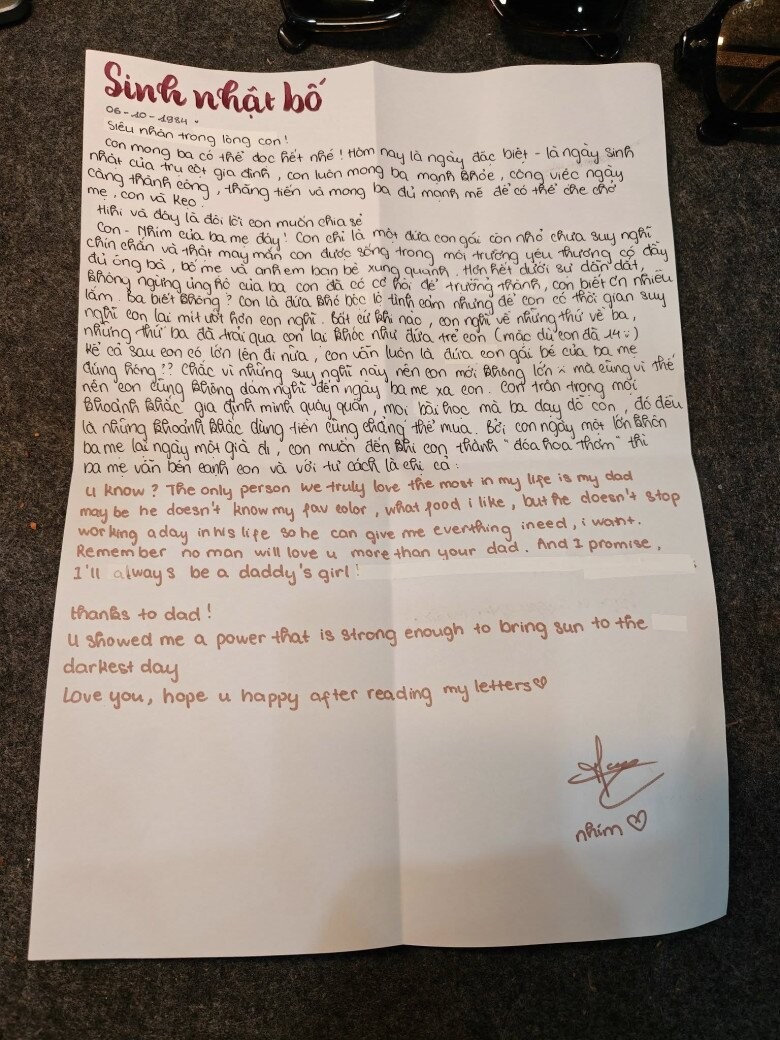 Sinh nhật bố
06-10-1984.
Siêu nhân trong lòng con!
Con mong ba có thể đọc hết nhé! Hôm nay là ngày đặc biệt - là ngày sinh
nhật của trụ cột gia đình, con luôn mong ba mạnh khỏe, công việc ngày
càng thành công, thăng tiến và mong ba đủ mạnh mẽ để có thể che chở
mẹ, con và Kẹo.
Hihi và đây là đôi lời con muốn chia sẻ
Con - Nhím của ba mẹ đây! Con chỉ là một đứa con gái còn nhỏ chưa suy nghĩ
chín chắn và thật may mắn con được sống trong môi trường yêu thương có đầy
đủ ông bà, bố mẹ và anh em bạn bè xung quanh. Hơn hết dưới sự dẫn dắt,
không ngừng ủng hộ của ba con đã có cơ hội để trưởng thành, con biết ơn nhiều
lắm. Ba biết không? Con là đứa khó bộc lộ tình cảm nhưng để con có thời gian suy
nghĩ con lại mít ướt hơn con nghĩ. Bất cứ khi nào, con nghĩ về những thứ về ba,
những thứ ba đã trải qua con lại khóc như đứa trẻ con (mặc dù con đã 14 :)
Kể cả sau con có lớn lên đi nữa, con vẫn luôn là đứa con gái bé của ba mẹ
đúng hông?? Chắc vì những suy nghĩ này nên con mới không lớn :^ mà cũng vì thế
nên con cũng không dám nghĩ đến ngày ba mẹ xa con. Con trân trọng mỗi
khoảnh khắc gia đình mình quây quần, mọi bài học mà ba dạy dỗ con, đó đều
là những khoảnh khắc dùng tiền cũng chẳng thể mua. Bởi con ngày một lớn khôn
ba mẹ lại ngày một già đi, con muốn đến khi con thành "đóa hoa thơm" thì
ba mẹ vẫn bên cạnh con và với tư cách là chị cả:
u know? The only person we truly love the most in my life is my dad
may be he doesn't know my fav color, what food i like, but he doesn't stop
working a day in his life so he can give me everthing i need, i want.
Remember no man will love u more than your dad. And I promise,
I'll always be a daddy's girl
thanks to dad!
u showed me a power that is strong enough to bring sun to the
darkest day
Love you, hope u happy after reading my letters♡
nhím ♡